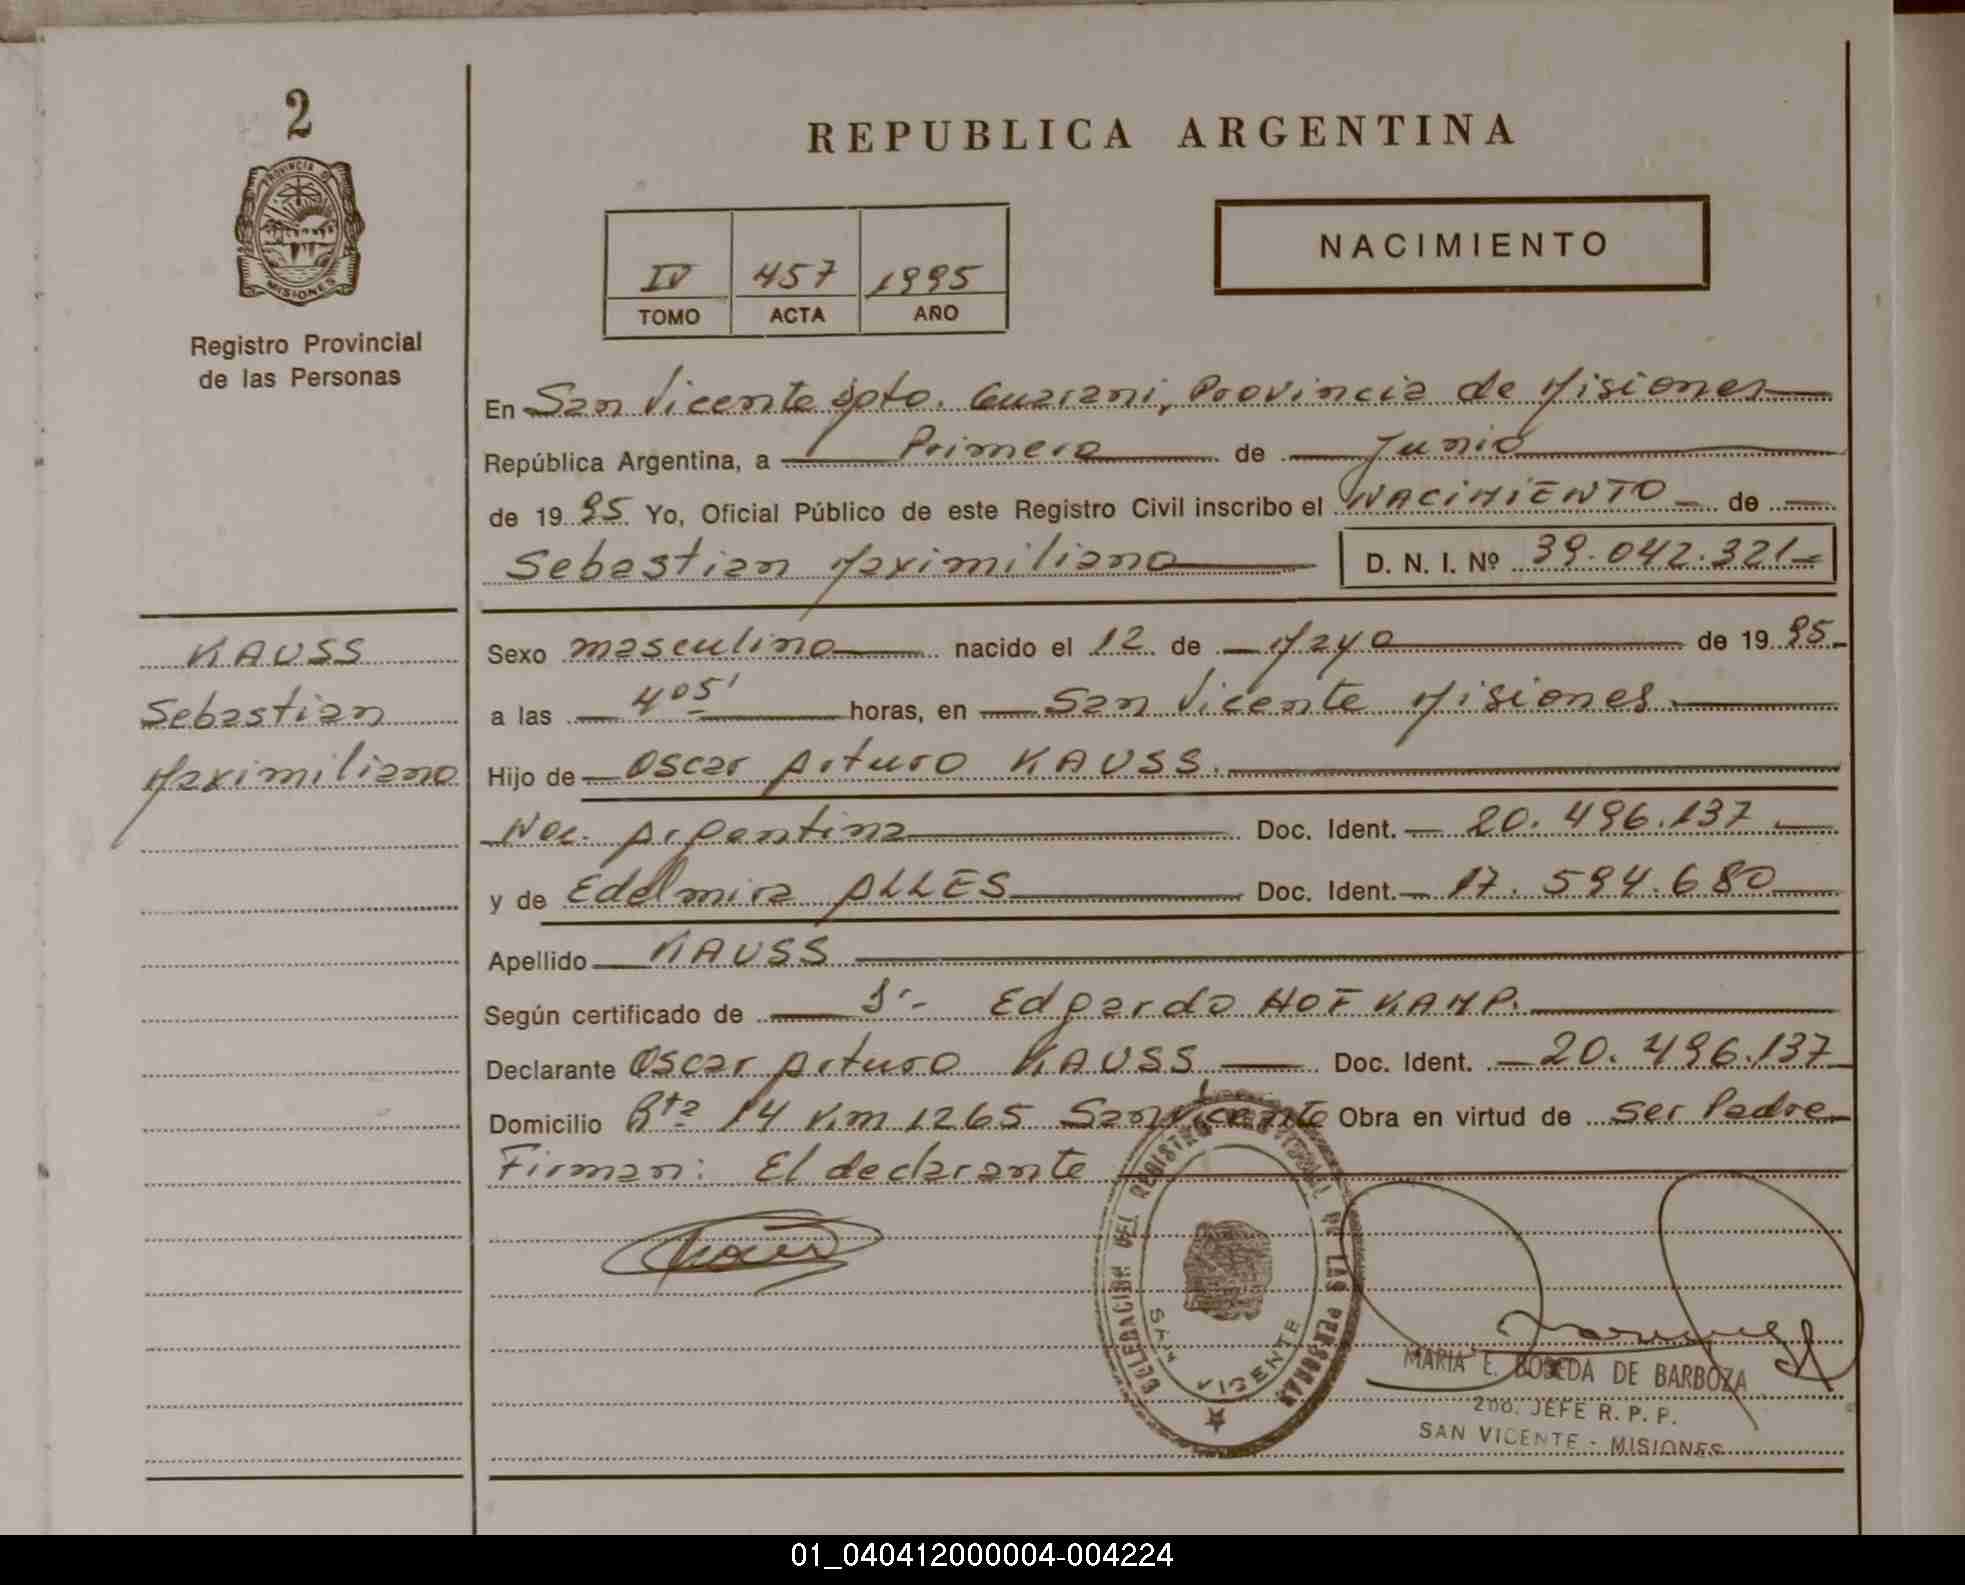 2
REPUBLICA ARGENTINA
PROVINCIA D
MISIONES
Registro Provincial
de las Personas
IV 457 1995
TOMO ACTA AÑO
NACIMIENTO
En San Vicente Dpto. Guarani, Provincia de Misiones
República Argentina, a Primero de Junio
de 1995 Yo, Oficial Público de este Registro Civil inscribo el NACIMIENTO de
Sebastian Maximiliano D. N. I. Nº 39.042.321
KAUSS
Sebastian
Maximiliano
Sexo masculino nacido el 12 de Mayo de 1995
a las 4 05' horas, en San Vicente Misiones
Hijo de Oscar Arturo KAUSS.
Nac. Argentina Doc. Ident. 20.496.137
y de Edelmira ALLES Doc. Ident. 17.594.680
Apellido KAUSS
Según certificado de Edgardo HOFKAMP.
Declarante Oscar Arturo KAUSS Doc. Ident. 20.496.137
Domicilio Rta 14 Km 1265 San Vicente Obra en virtud de ser Padre
Firman: El declarante
DELEGACION DEL REGISTRO PROVINCIAL DE LAS PERSONAS
SAN VICENTE
MARIA E. DE BARBOZA
2do. JEFE R. P. P.
SAN VICENTE - MISIONES
01_040412000004-004224